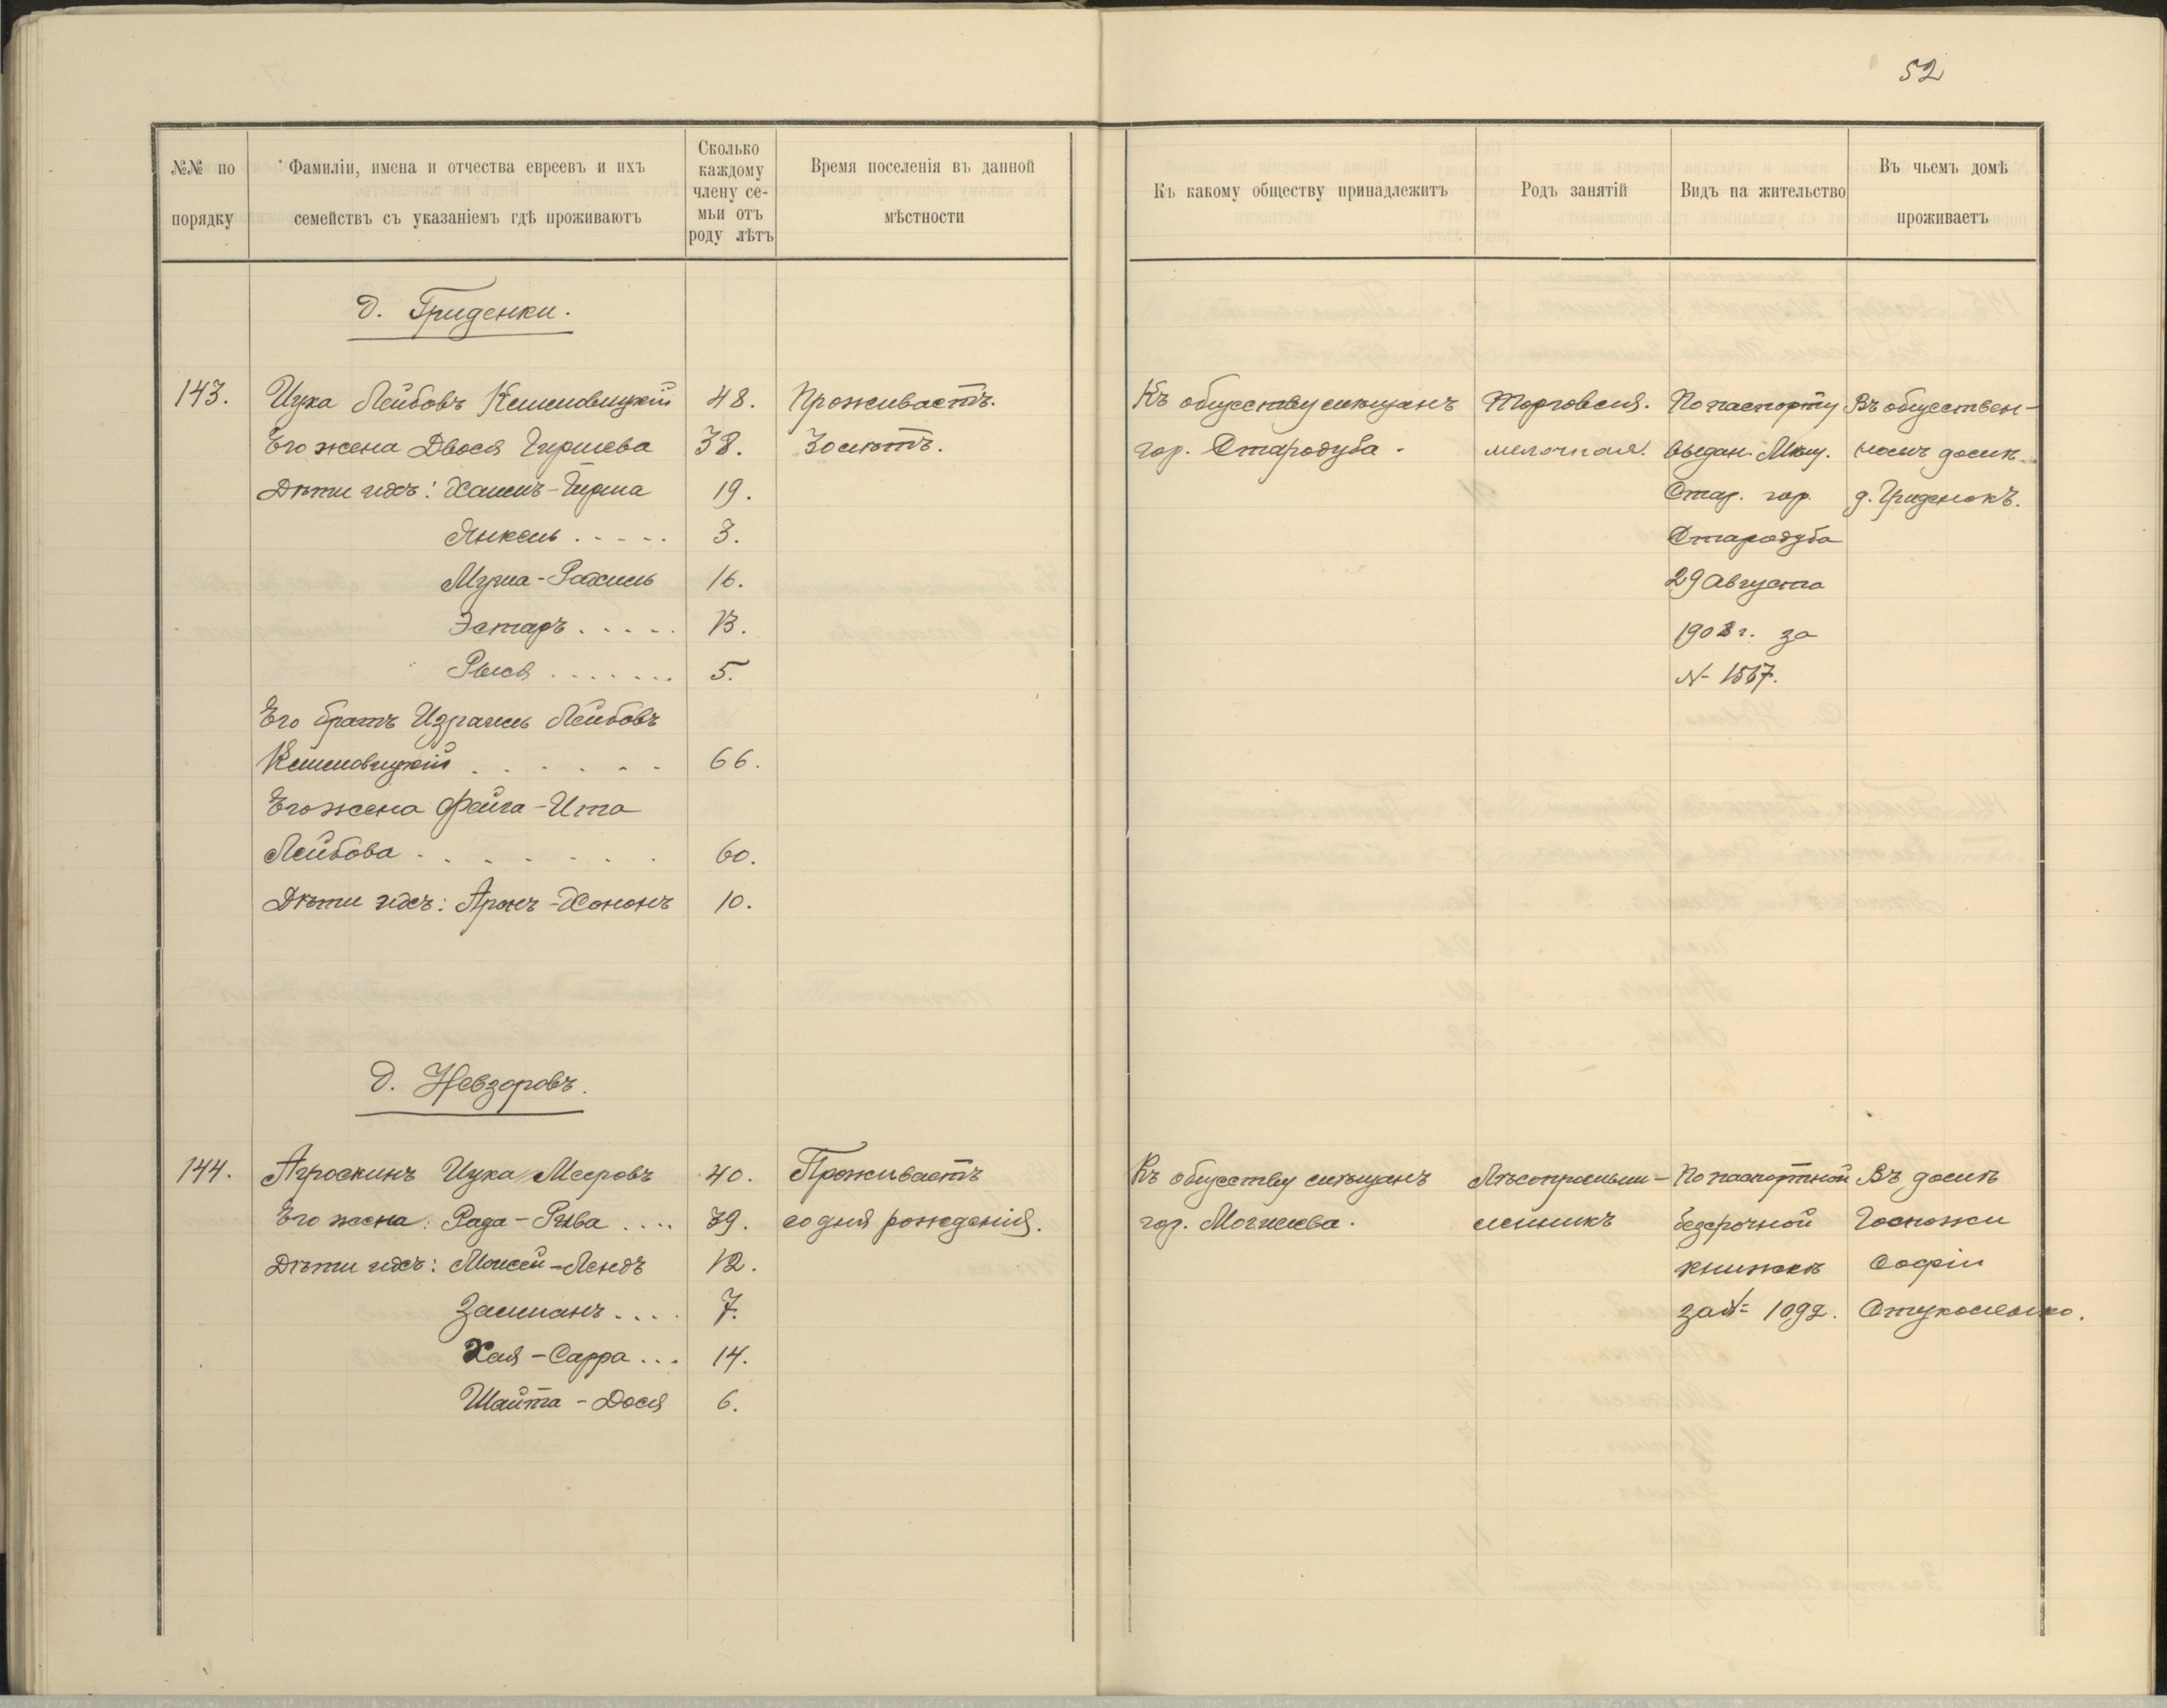 52
№№ по
порядку
Фамиліи, имена и отчества евреевъ и ихъ
семействъ съ указаніемъ гдѣ проживаютъ
Сколько
каждому
члену се-
мьи отъ
роду лѣтъ
Время поселенія въ данной
мѣстности
Къ какому обществу принадлежитъ
Родъ занятій
Видъ на жительство
Въ чьемъ домѣ
проживаетъ
Д. Гриденки.
143. Ицка Лейбовъ 48. Проживаетъ. Къ обществу мѣщанъ Торговля. По паспорту Въ обществен-
Его жена Двося Гиршева 38. 30 лѣтъ. гор. Стародуба. мелочная. выдан. Мѣщ. номъ домѣ
Дѣти ихъ: Хаимъ-Гирша 19. Стар. гор. д. Гриденокъ.
Янкель . . . . . 3. Стародуба
Муша-Рохиль 16. 29 Августа
Эстаръ . . . . . 13. 1908 г. за
Рыся . . . . . . . 5. № 1567.
Его братъ Израиль Лейбовъ
66.
Его жена Фейга-Ита
Лейбова . . . . . . . 60.
Дѣти ихъ: Аронъ-Хононъ 10.
Д. Невзоровъ.
144. Агроскинъ Ицка Мееровъ 40. Проживаетъ Къ обществу мѣщанъ Лѣсопромыш- По паспортной Въ домѣ
Его жена: Рада-Рива . . . . 39. со дня рожденія. гор. Могилева. ленникъ безсрочной Госпожи
Дѣти ихъ: Моисей-Лендъ 12. книжкѣ Софіи
Залманъ . . . . 7. за № 1092.
Хая-Сарра . . . 14.
Шайта-Дося 6.